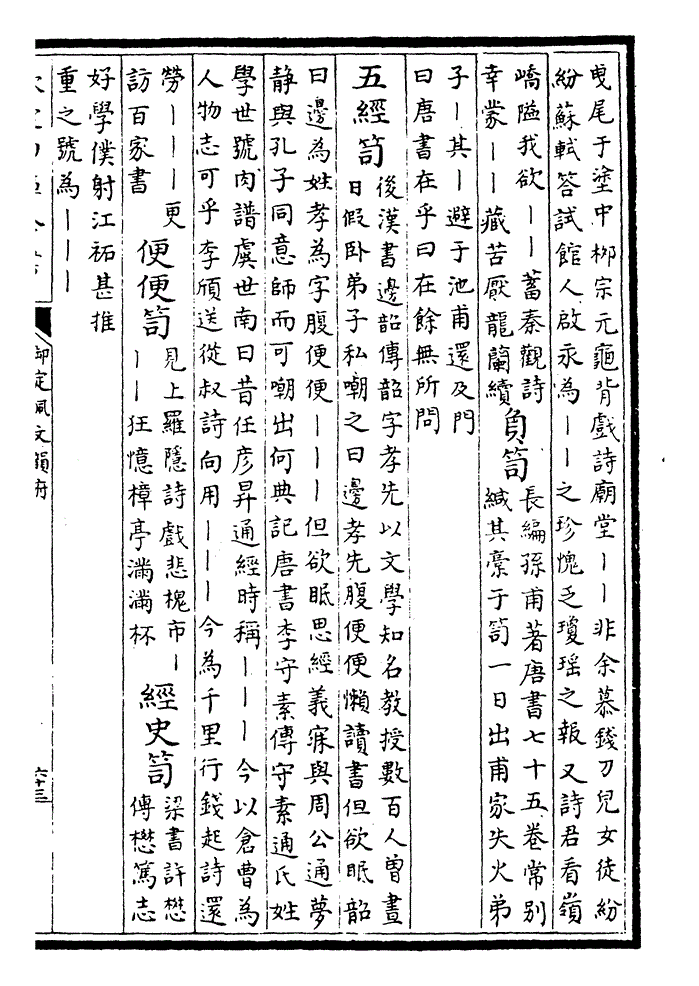 曵尾于塗中栁宗元龜背戲詩廟堂——非余慕錢刀兒女徒紛
紛蘇軾答試館人啟永為——之珍愧乏瓊瑶之報又詩君看嶺
嶠隘我欲——蓄秦觀詩
幸蒙——藏苦厭龍蘭續
負笥
長編孫甫著唐書七十五卷常别
緘其藁于笥一日出甫家失火弟
子—其—避于池甫還及門
曰唐書在乎曰在餘無所問
五經笥
後漢書邊韶傳韶字孝先以文學知名教授數百人曾晝
日假卧弟子私嘲之曰邊孝先腹便便懶讀書但欲眠韶
曰邊為姓孝為字腹便便———但欲眠思經義寐與周公通夢
静與孔子同意師而可嘲出何典記唐書李守素傳守素通氏姓
學世號肉譜虞世南曰昔任彦昇通經時稱———今以倉曹為
人物志可乎李頎送從叔詩向用———今為千里行錢起詩還
勞———更
訪百家書
便便笥
見上羅隱詩戲悲槐市—
——狂憶樟亭滿滿杯
經史笥
梁書許懋
傳懋篤志
好學僕射江祏甚推
重之號為———
御定佩文韻府
六十三